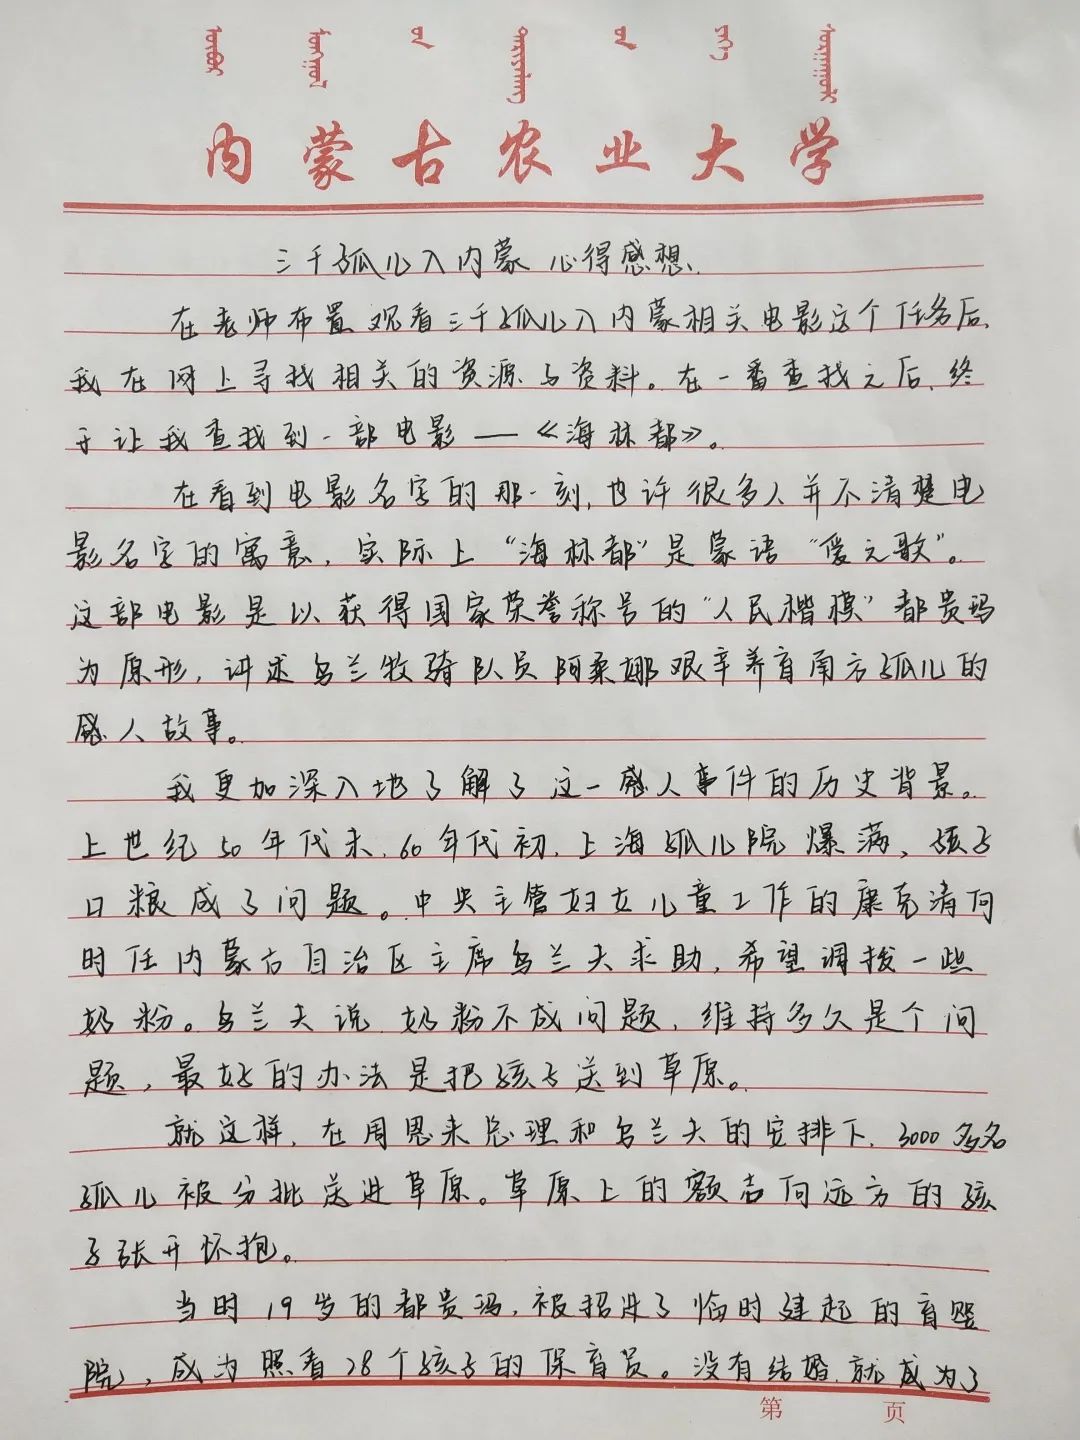 内蒙古农业大学
三千孤儿入内蒙 心得感想
在老师布置观看三千孤儿入内蒙相关电影这个任务后,
我在网上寻找相关的资源与资料。在一番查找之后,终
于让我查找到一部电影——《海林都》。
在看到电影名字的那一刻,也许很多人并不清楚电
影名字的寓意,实际上“海林都”是蒙语“爱之歌”。
这部电影是以获得国家荣誉称号的“人民楷模”都贵玛
为原形,讲述乌兰牧骑队员阿柔娜艰辛养育南方孤儿的
感人故事。
我更加深入地了解了这一感人事件的历史背景。
上世纪50年代末、60年代初,上海孤儿院爆满,孩子
口粮成了问题。中央主管妇女儿童工作的康克清向
时任内蒙古自治区主席乌兰夫求助,希望调拨一些
奶粉。乌兰夫说,奶粉不成问题,维持多久是个问
题,最好的办法是把孩子送到草原。
就这样,在周恩来总理和乌兰夫的安排下,3000多名
孤儿被分批送进草原。草原上的额吉向远方的孩
子张开怀抱。
当时19岁的都贵玛,被招进了临时建起的育婴
院,成为照看28个孩子的保育员。没有结婚,就成为了
第 页